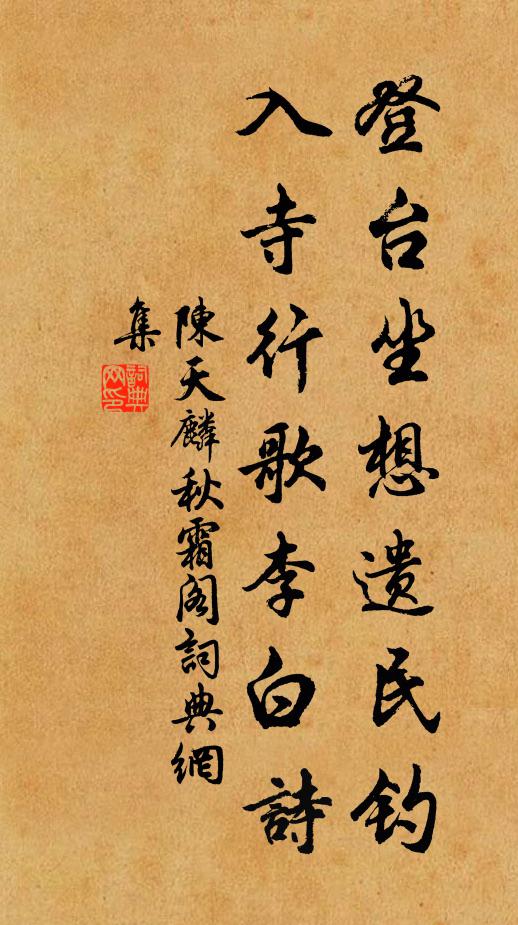 登台坐想遗民钓
入寺行歌李白詩
陳天麟秋霜阁詞典網
集
詞典
网印